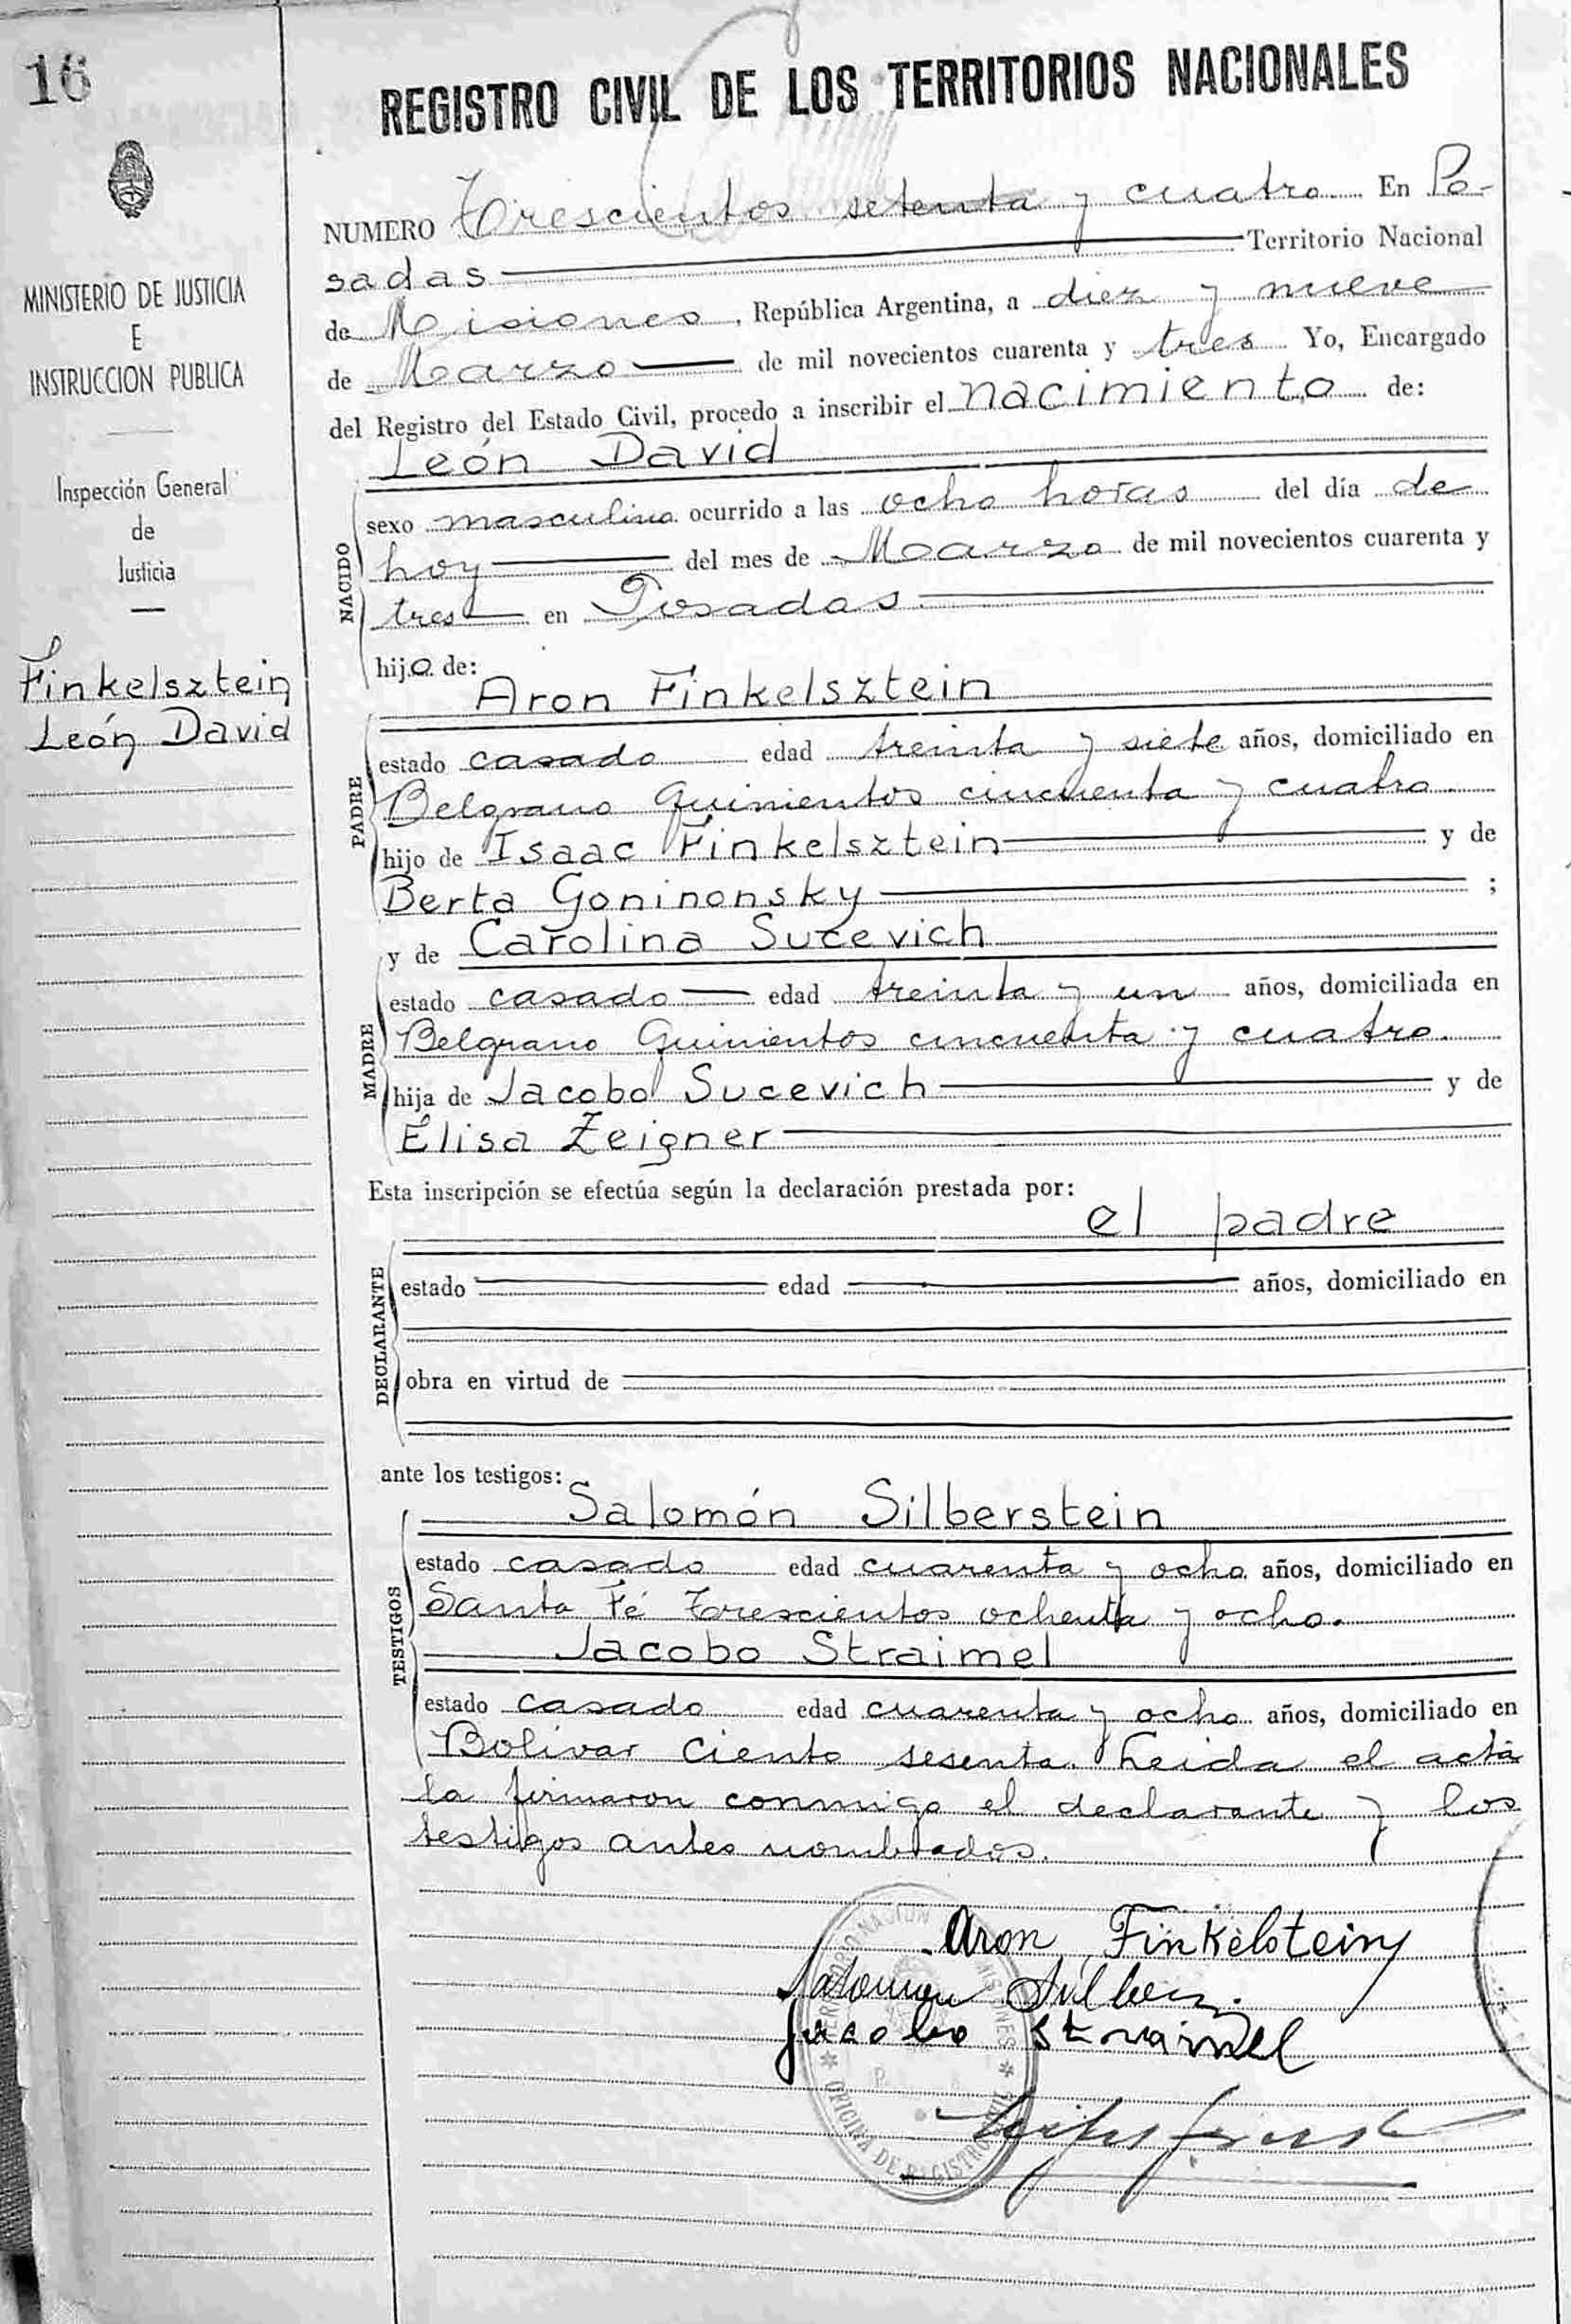 16
REGISTRO CIVIL DE LOS TERRITORIOS NACIONALES
MINISTERIO DE JUSTICIA
E
INSTRUCCION PUBLICA
Inspección General
de
Justicia
Finkelsztein
León David
NUMERO Trescientos setenta y cuatro En Po-
sadas Territorio Nacional
de Misiones, República Argentina, a diez y nueve
de Marzo de mil novecientos cuarenta y tres Yo, Encargado
del Registro del Estado Civil, procedo a inscribir el nacimiento de:
León David
NACIDO
sexo masculino ocurrido a las ocho horas del día de
hoy del mes de Marzo de mil novecientos cuarenta y
tres en Posadas
hijo de:
Aron Finkelsztein
PADRE
estado casado edad treinta y siete años, domiciliado en
Belgrano Quinientos cincuenta y cuatro
hijo de Isaac Finkelsztein y de
Berta Goninonsky ;
y de Carolina Sucevich
MADRE
estado casado edad treinta y un años, domiciliada en
Belgrano Quinientos cincuenta y cuatro.
hija de Jacobo Sucevich y de
Elisa Zeigner
Esta inscripción se efectúa según la declaración prestada por:
el padre
DECLARANTE
estado edad años, domiciliado en
obra en virtud de
ante los testigos:
Salomón Silberstein
TESTIGOS
estado casado edad cuarenta y ocho años, domiciliado en
Santa Fé Trescientos ochenta y ocho.
Jacobo Straimel
estado casado edad cuarenta y ocho años, domiciliado en
Bolívar Ciento sesenta. Leida el acta
la firmaron conmigo el declarante y los
testigos antes nombrados.
Aron Finkelstein
Salomon
Jacobo Straimel
OFICINA DE REGISTRO CIVIL